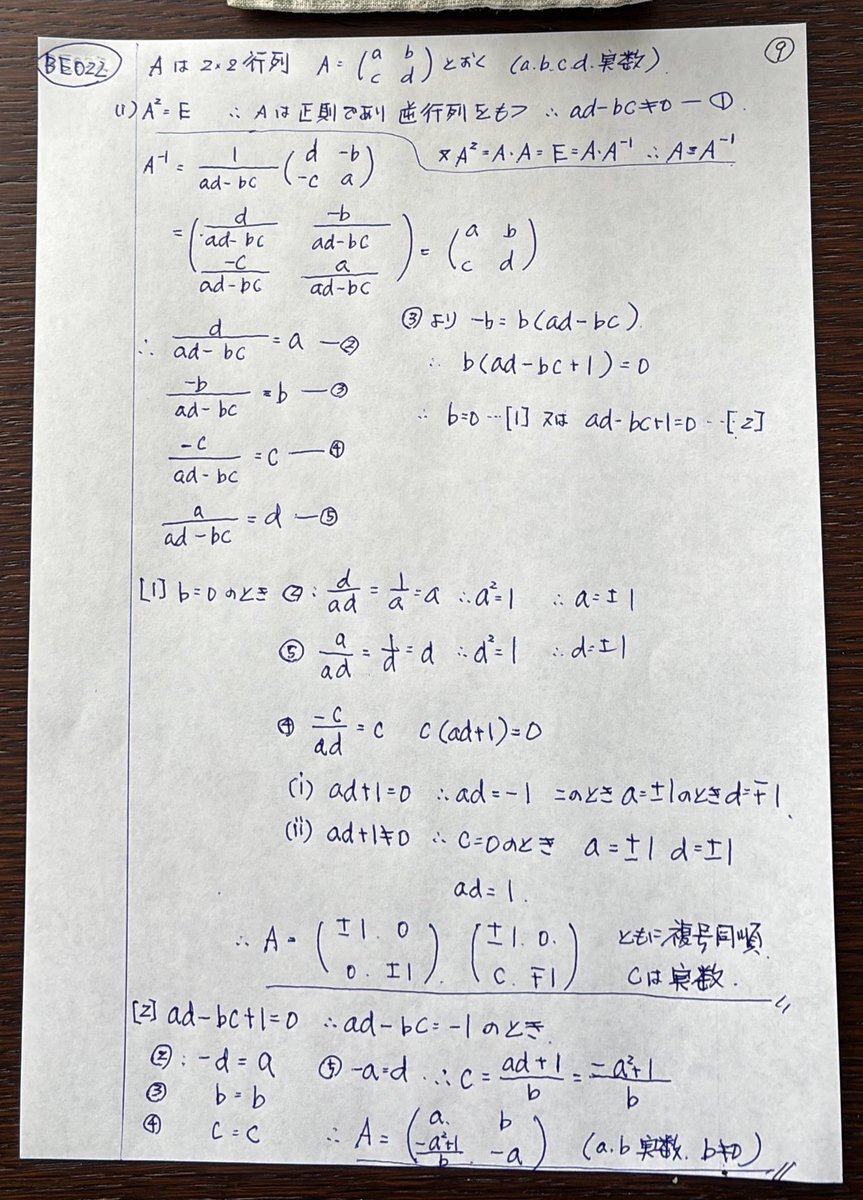 BE022 Aは2×2行列 A=(a b c d)とおく (a.b.c.d.実数) ⑨
(1) A²=E ∴Aは正則であり逆行列をもつ ∴ad-bc≠0 ―①
A⁻¹= 1/(ad-bc) (d -b -c a) 又A²=A・A=E=A・A⁻¹ ∴A=A⁻¹
=(d/(ad-bc) -b/(ad-bc) -c/(ad-bc) a/(ad-bc)) = (a b c d)
∴ d/(ad-bc) = a ―②
-b/(ad-bc) = b ―③
-c/(ad-bc) = c ―④
a/(ad-bc) = d ―⑤
③より -b=b(ad-bc)
∴ b(ad-bc+1)=0
∴ b=0…[1] 又は ad-bc+1=0…[2]
[1] b=0のとき ②: d/ad = 1/a = a ∴a²=1 ∴a=±1
⑤ a/ad = 1/d = d ∴d²=1 ∴d=±1
④ -c/ad = c c(ad+1)=0
(i) ad+1=0 ∴ad=-1 このときa=±1のときd=∓1.
(ii) ad+1≠0 ∴c=0のとき a=±1 d=±1
ad=1.
∴A= (±1. 0 0. ±1). (±1. 0. C. ∓1) ともに複号同順
Cは実数.
[2] ad-bc+1=0 ∴ad-bc=-1のとき.
②: -d=a ⑤ -a=d ∴c= (ad+1)/b = (-a²+1)/b
③ b=b
④ c=c ∴A= (a. b (-a²+1)/b. -a) (a.b実数. b≠0)